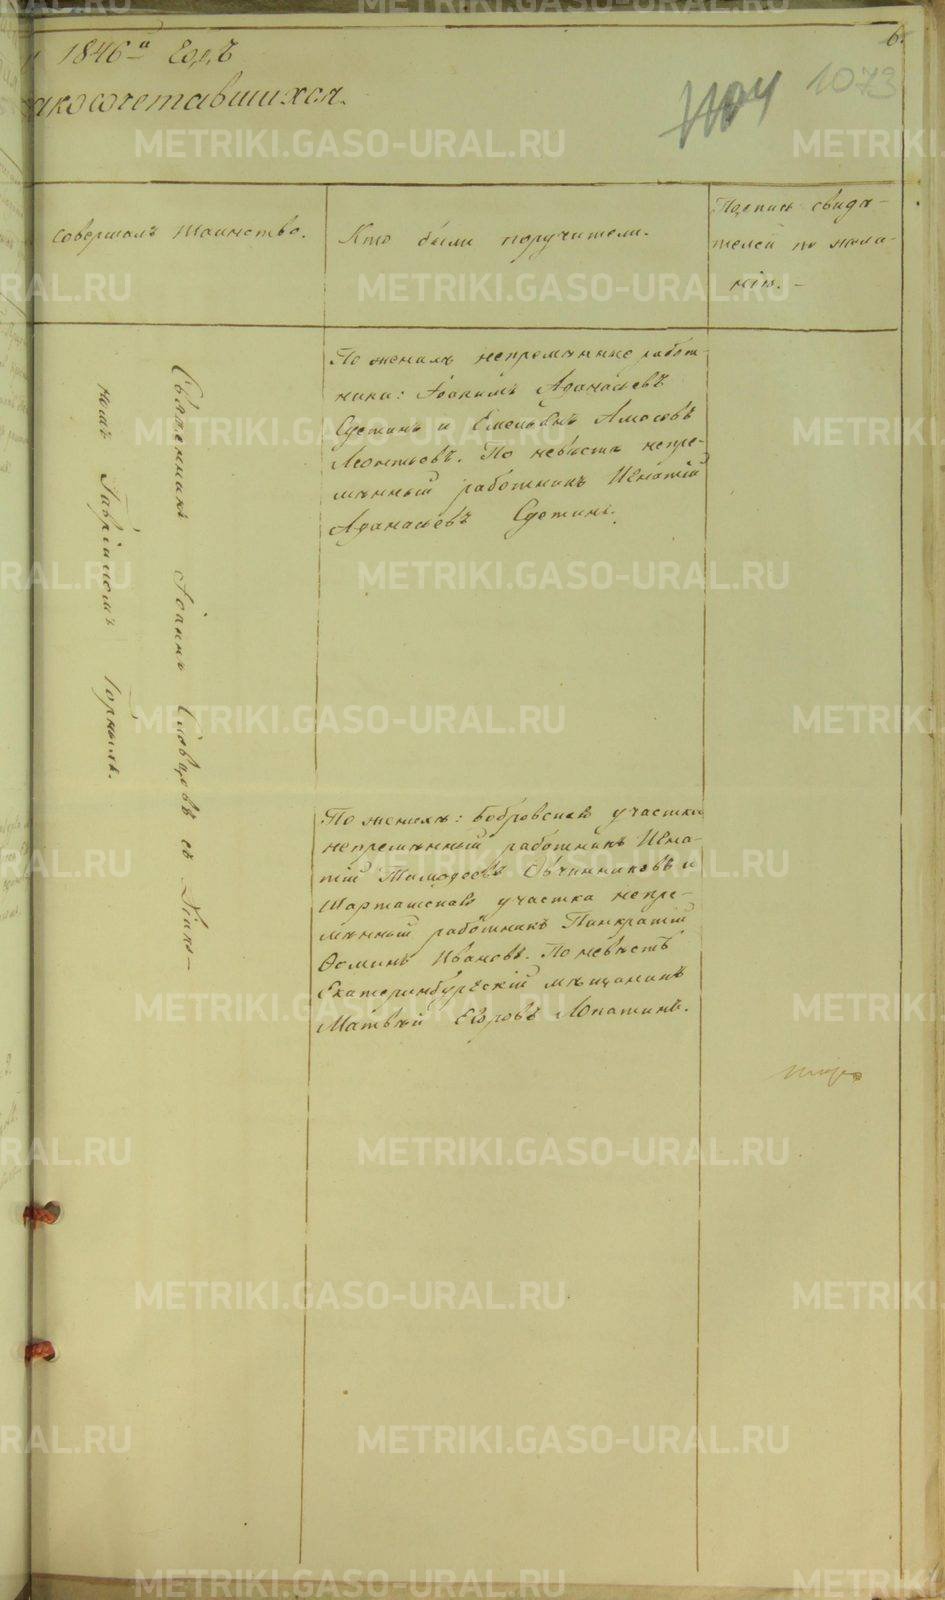 6.
1846а Годъ
акосочетавшихся.
1073
совершалъ таинство.
Кто были поручители.
Подпись свиде-
телей по жела-
нію.
Священникъ Іоаннъ Словцовъ съ Діако-
номъ Гавріиломъ Горныхъ.
По женихѣ непремѣнные работ-
ники: Іоакимъ Афанасьевъ
и Емельянъ Амосовъ
Леонтьевъ. По невѣстѣ непре-
мѣнный работникъ Игнатій
Афанасьевъ
По женихѣ: Бобровскаго участка
непремѣнный работникъ Игна-
тій Тимофеевъ Овчинниковъ и
Шарташскаго участка непре-
мѣнный работникъ Панкратій
Ѳоминъ Ивановъ. По невѣстѣ
Екатеринбургскій мѣщанинъ
Матвѣй Егоровъ Лопатинъ.
METRIKI.GASO-URAL.RU